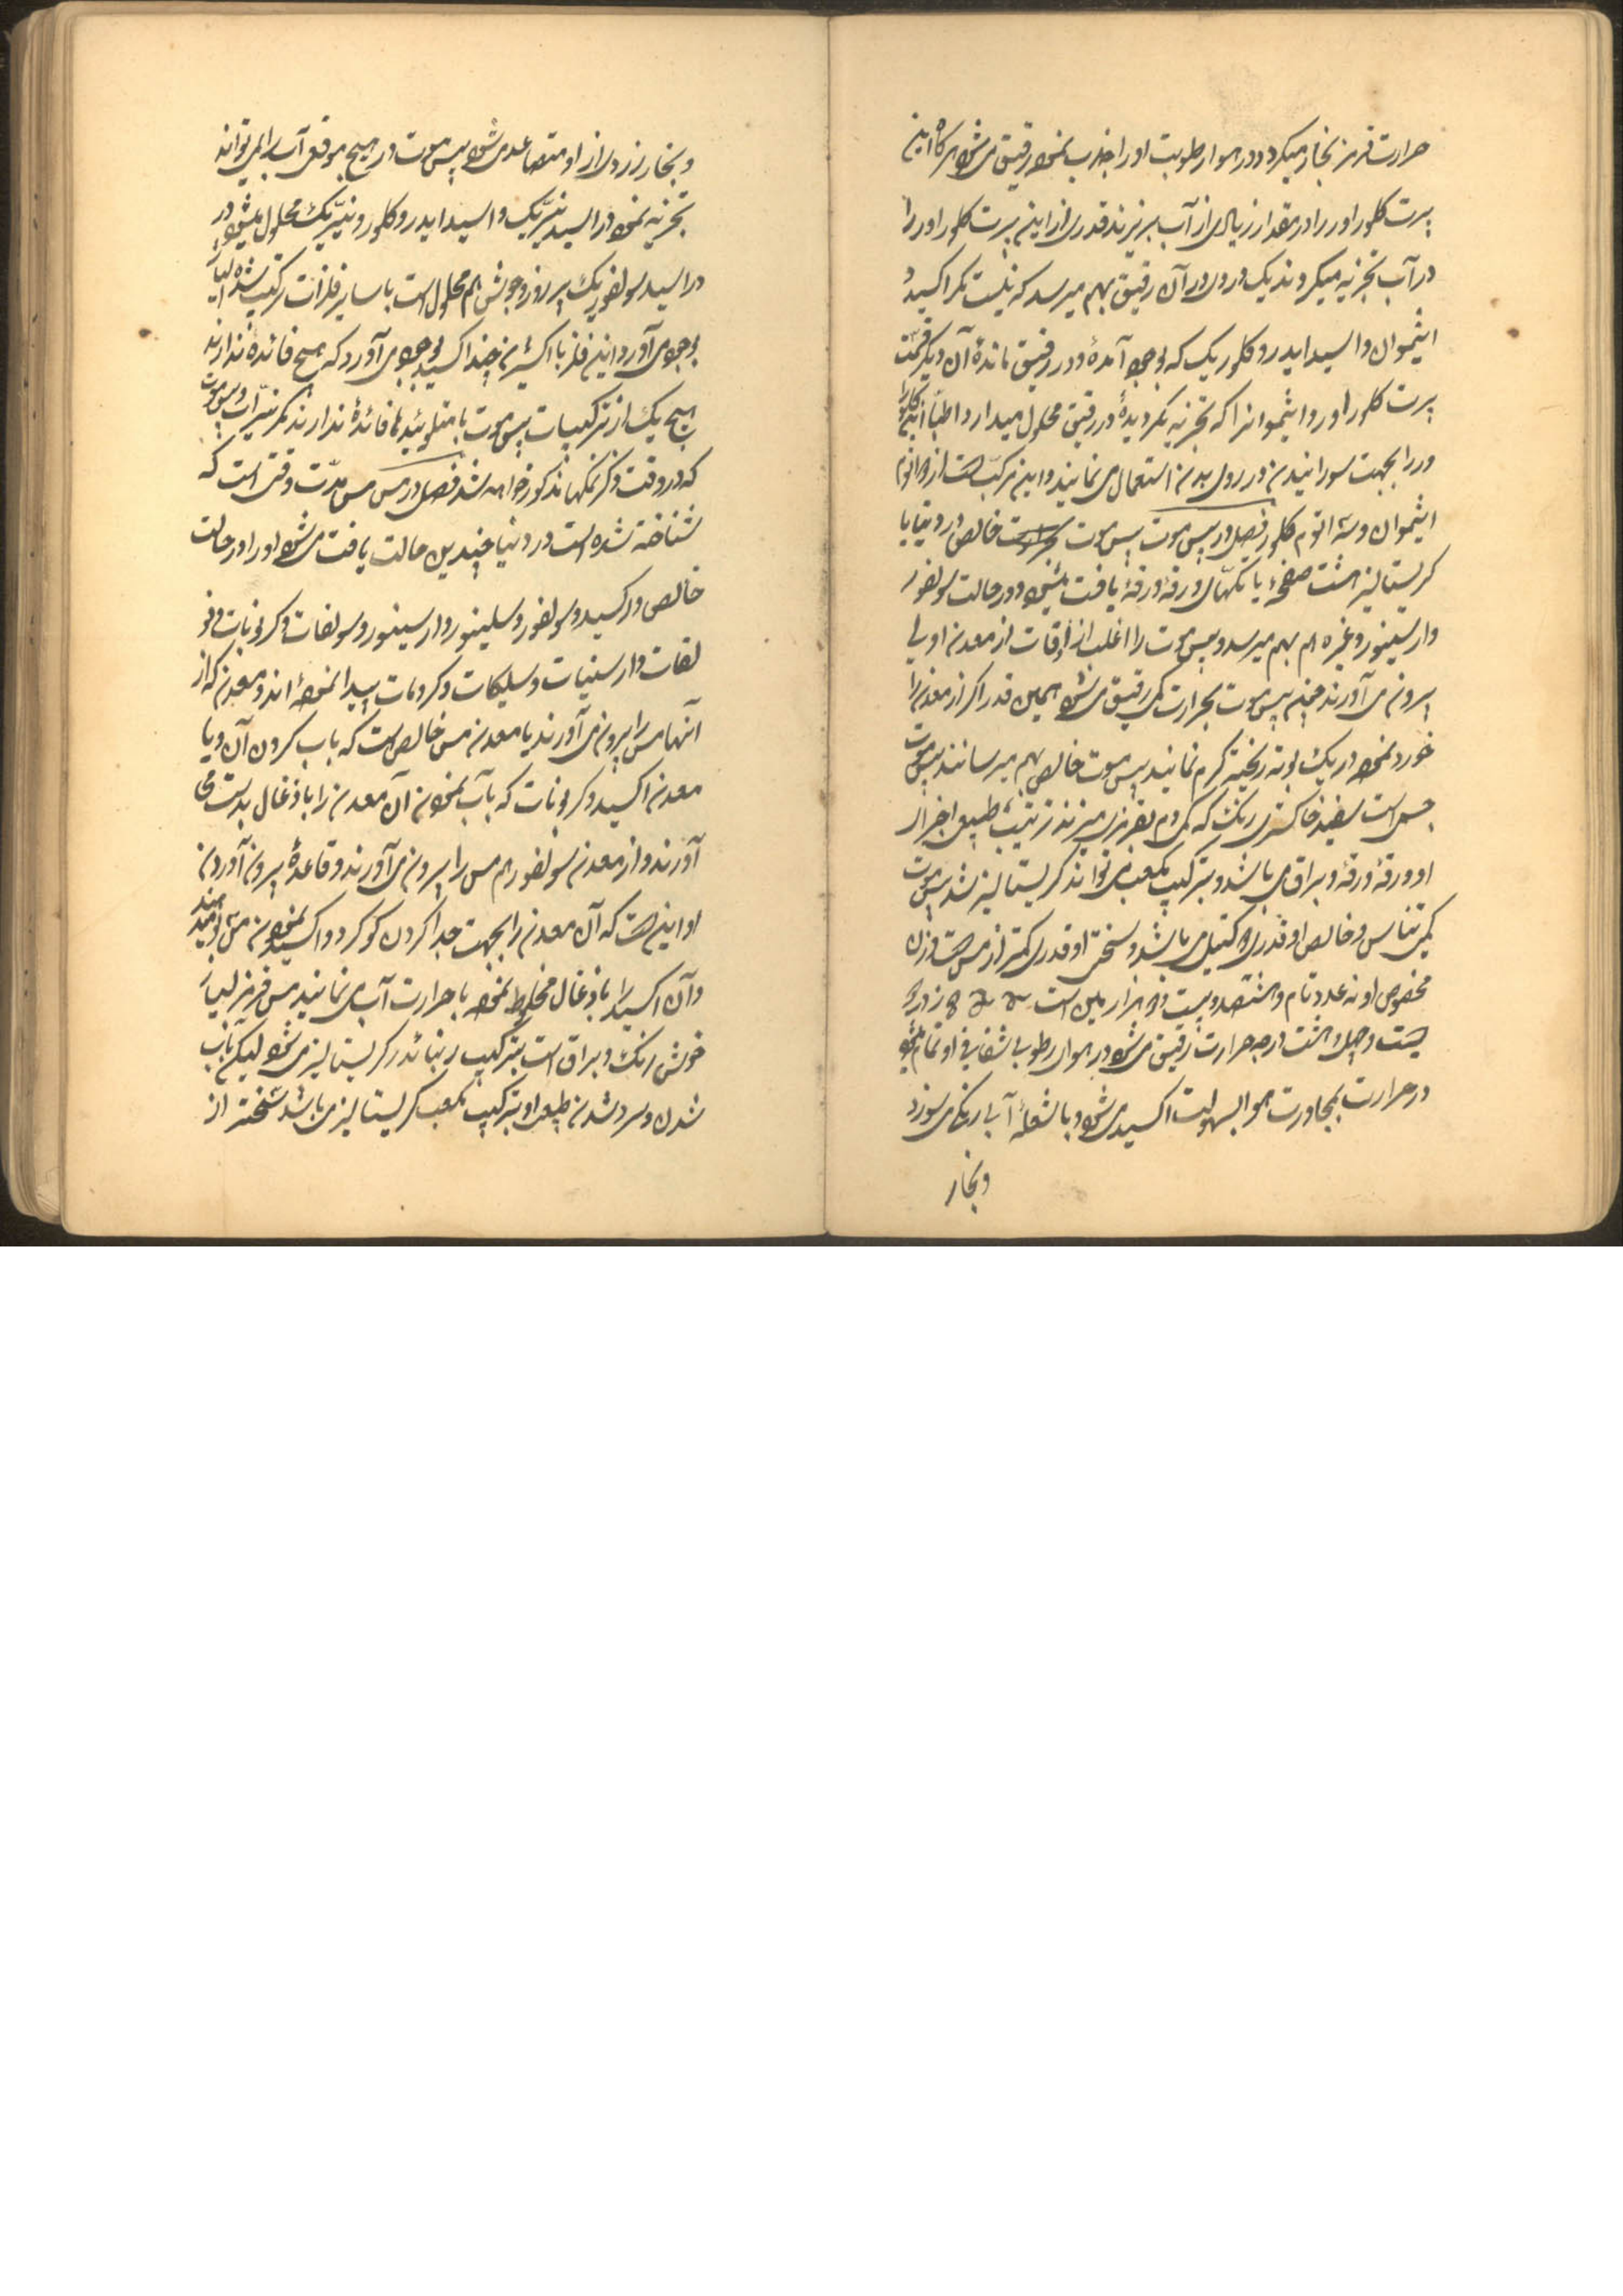 حرارت قرمز بخار میکردد در هوا رطوبت او را جذب نموده رقیق می‌شود هرگاه این
پرت کلور اور را در مقدار زیادی از آب بریزند قدری از این پرت کلور اور را
در آب تجزیه میکردند یک دردی در آن رقیق بهم میرسد که نیست مگر اکسید
انتیموان و اسید ایدرو کلوریک که بوجود آمده و در رقیق مانده آن دیگر قسمت
پرت کلور اور و انتیموانرا که تجزیه نگردیده در رقیق محلول میدارد و اطبا این کلورا
ور را بجهت سورانیدن در روی بدن استعمال می‌نمایند و این مرکب است از دو اتوم
انتیموان و سه اتوم کلور فصل در بیس موت بیس موت خالص در دنیا با
کریستالیز هشت صفحه یا تکهای ورقه ورقه یافت میشود و در حالت سولفور
و ارسینور و غیره هم بهم میرسد و بیس موت را اغلب از اوقات از معدن اولی
بیرون می‌آورند چنین بیس موت بحرارت کمی رقیق می‌شود همین قدر اگر از معدن را
خورد نموده در یک بوته ریخته گرم نمایند بیس موت خالص بهم میرسانند بیس موت
جسمی است سفید خاکستری رنگ که کمی دم بقرمزی میزند ترتیب طبیعی اجزای
او ورقه ورقه و براق می‌باشد و بترکیب مکعب می‌تواند کریستالیز شد بیس موت
کمی تنا س و خالص او قدری دکتیل می‌باشد و سختی او قدری کمتر از مس است وزن
مخصوص او نه عدد تمام و هشتصد و بیست و دو هزار یمین است در
بیست و چهل و هشت درجه حرارت رقیق می‌شود در هوای رطوبی شفافی او تمام میشود
در حرارت بمجاورت هوا بسهولت اکسید می‌شود و با شعله آبی رنگ می‌سوزد
و بخار
و بخار زردی از او متصاعد می‌شود بیس موت در هیچ موقع آب را نمی‌تواند
تجزیه نمود در اسید نیتریک و اسید ایدرو کلورو نیتریک محلول میشود در
در اسید سولفوریک پر زور و جوش هم محلول است با سایر فلزات ترکیب شده
بوجود می‌آورد این فلز با اکسیژن چند اکسید بوجود می‌آورد که هیچ فائده ندارند
هیچ یک از ترکیبات بیس موت با متلوئیدها فائده ندارند مگر نیترات بیس موت
که در وقت ذکر نمکها مذکور خواهد شد فصل در مس مس مدت وقتی است که
شناخته شده است در دنیا بچندین حالت یافت می‌شود او را در حالت
خالص و اکسید و سولفور و سلینور و ارسینور و سولفات و کربونات و فو
لفات و ارسنیات و سلیکات و کرومات پیدا نموده اند و معدنی که از
آنها مس را بیرون می‌آورند یا معدن مس خالص است که باب کردن آن و یا
معدن اکسید و کربونات که بآب نمودن آن معدن را با ذغال بدست می
آورند و از معدن سولفور هم مس را بیرون می‌آورند و قاعده بیرون آوردن
او اینست که آن معدن را بجهت جدا کردن گوگرد و اکسید نمودن مس بو میدهند
و آن اکسید را با ذغال مخلوط نموده با حرارت آب می‌نمایند مس قرمز بسیار
خوش رنگ و براق است بترکیب رنبائدر کریستالیز می‌شود لیکن بآب
شدن و سرد شدن طبیعی او بترکیب مکعب کریستالیز می‌باشد سخت‌تر از